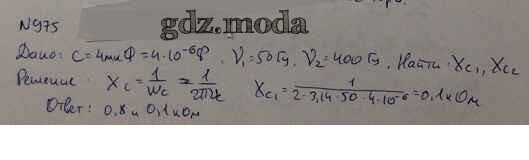 N975
gdz.moda
Дано: C=4мкФ=4·10⁻⁶Ф, V₁=50Гц, V₂=400Гц, Найти: Xc₁, Xc₂
Решение: Xc = 1/Wc = 1/2πνc Xc₁ = 1/2·3,14·50·4·10⁻⁶ = 0,1кОм
Ответ: 0,8 и 0,1кОм